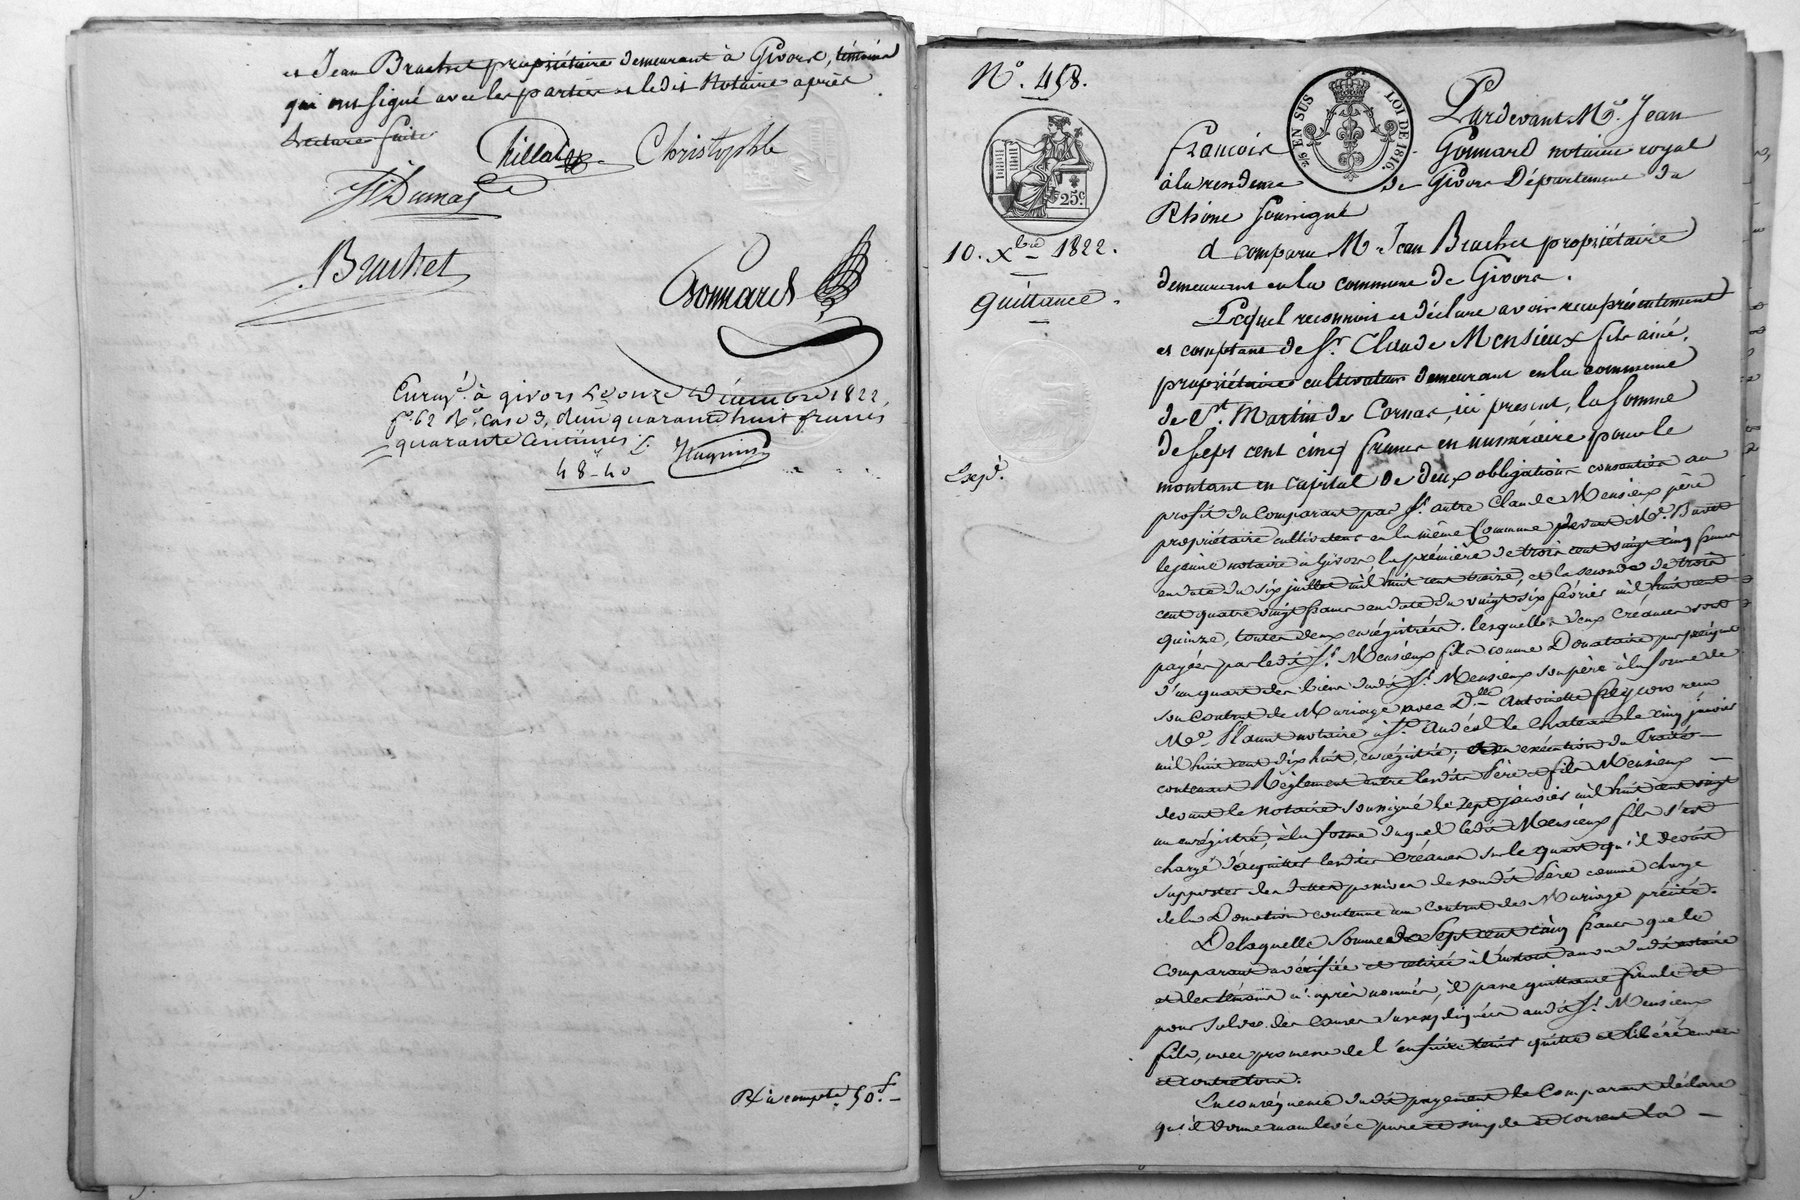 et Jean Brachet propriétaire demeurant à Givors, témoins
qui ont signé avec les parties et ledit Notaire après
lecture faite
Christophle
Dumas
Brachet
Gonnard
Enregé. à givors le onze Décembre 1822,
fo. 62 Vo. case 3, deux quarante huit francs
quarante centimes
48-40
Rx à compte 50f.
No. 458.
25c
10. Xbre 1822.
Quittance.
Expd.
25 EN SUS LOI DE 1816.
Pardevant Me. Jean
François Gonnard notaire royal
à la residence de Givors Département du
Rhône soussigné
a comparu Mr. Jean Brachet propriétaire
demeurant en la commune de Givors.
Lequel reconnoit et déclare avoir reçu présentement
et comptant de Sr. Claude Mensieux fils ainé,
propriétaire cultivateur demeurant en la commune
de St. Martin de Cornas, ici présent, la somme
de sept cent cinq francs en numéraire pour le
montant en capital de deux obligations consenties au
profit du comparant par Sr. autre Claude Mensieux père
propriétaire cultivateur en la même Commune devant Me.
le jeune notaire à Givors, la première de trois cent vingt cinq francs
en date du six juillet mil huit cent treize, et la seconde de trois
cent quatre vingt francs en date du vingt six février mil huit cent
quinze, toutes deux enrégistrées. lesquelles deux créances sont
payées par ledit Sr. Mensieux fils comme Donataire par préciput
d'un quart des biens dudit Sr. Mensieux son père à la forme de
son Contrat de Mariage avec Dlle. Antoinette reçu
Me. notaire à St. Andéol le chateau le cinq janvier
mil huit cent dix huit, enregistré; et en exécution du Traité
contenant Règlement entre lesdits Père et fils Mensieux
devant le notaire soussigné le sept janvier mil huit cent vingt
un enrégistré, à la forme duquel ledit Mensieux fils s'est
chargé d'acquitter lesdites créances sur le quart qu'il devoit
supporter des dettes passives de sondit Père comme charge
de la Donation contenue au contrat de Mariage précité.
De laquelle somme de Sept cent cinq francs que le
comparant a vérifiée et retirée à l'instant au vu dudit notaire
et des témoins ci après nommés, il passe quittance finale et
pour solde des causes susexpliquées audit Sr. Mensieux
fils, avec promesse de l'en faire tenir quitte et libéré envers
et contre tous.
En conséquence dudit payement le Comparant déclare
qu'il donne mainlevée pure et simple et consent la